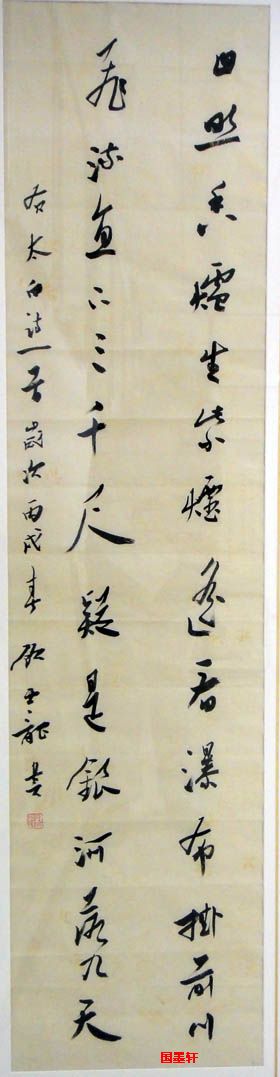 日照香爐生紫煙遙看瀑布掛前川
飛流直下三千尺疑是銀河落九天
右太白詩一首歲次丙戌春士龍書
国墨轩